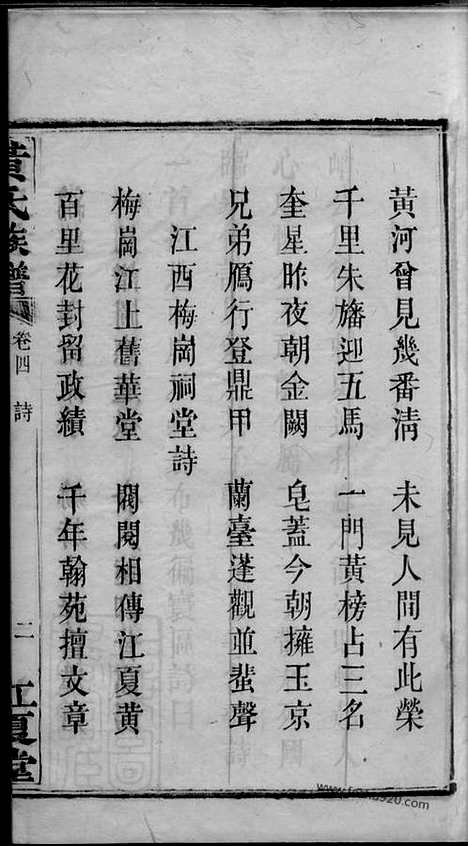 黃河曾見幾番清 未見人間有此榮
千里朱旛迎五馬 一門黃榜占三名
奎星昨夜朝金闕 皂蓋今朝擁玉京
兄弟鴈行登鼎甲 蘭臺蓬觀並蜚聲
江西梅崗祠堂詩
梅崗江上舊華堂 閥閱相傳江夏黃
百里花封留政績 千年翰苑擅文章
黃氏族譜 卷四 詩 二 江夏堂